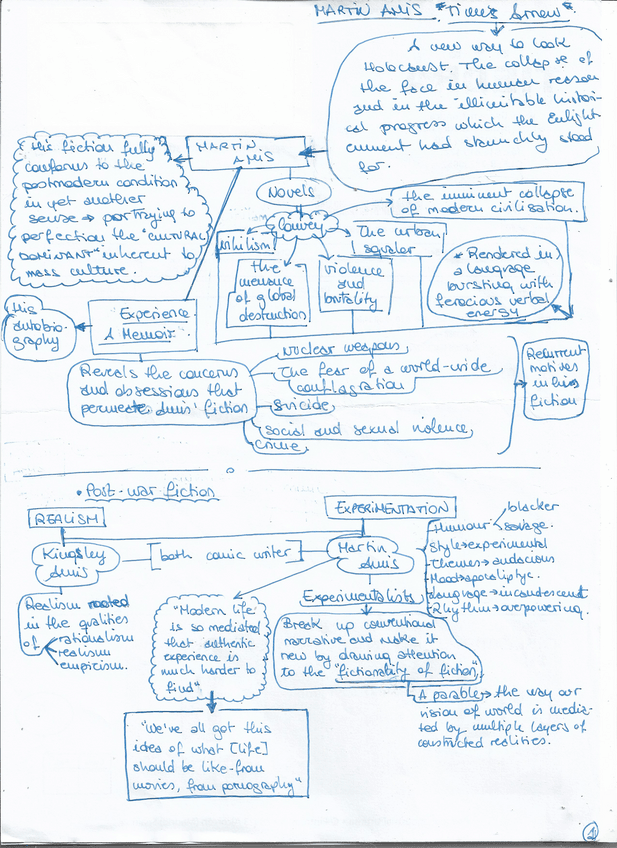 MARTIN AMIS "Time's Arrow".
A new way to look
Holocaust. The collapse of
the face in human reason
and in the "illimitable histori-
cal progress which the Enlight
enment had staunchly stood
for.
MARTIN
AMIS
His fiction fully
conforms to the
postmodern condition
in yet another
sense → portraying to
perfection the "CULTURAL
DOMINANT" inherent to
mass culture.
Novels
Convey
the imminent collapse
of modern civilisation.
Nihilism
The urban
squalor
the
menace
of global
destruction
violence
and
brutality
* Rendered in
a language
bursting with
ferocious verbal
energy
Experience.
A Memoir.
His
autobio-
graphy
Reveals the concerns
and obsessions that
permeate Amis' fiction
Nuclear weapons
The fear of a world-wide
conflagration
Suicide
social and sexual violence
Crime
Recurrent
motives
in his
fiction
• Post-war fiction
REALISM
EXPERIMENTATION
Kingsley
Amis
both comic writer
Martin
Amis
Humour
blacker
savage.
Style → experimental
Themes → audacious
Mood → apocaliptyc.
Language → incandescent
Rhythm → overpowering.
Realism rooted
in the qualities
of
rationalism
realism
empiricism.
"Modern life
is so mediated
that authentic
experience is
much harder to
find"
Experimentalists
Break up conventional
narrative and make it
new by drawing attention
to the "fictionality of fiction"
A parable → the way our
vision of world is media-
ted by multiple layers of
constructed realities.
"We've all got this
idea of what [life]
should be like - from
movies, from pornography"
1